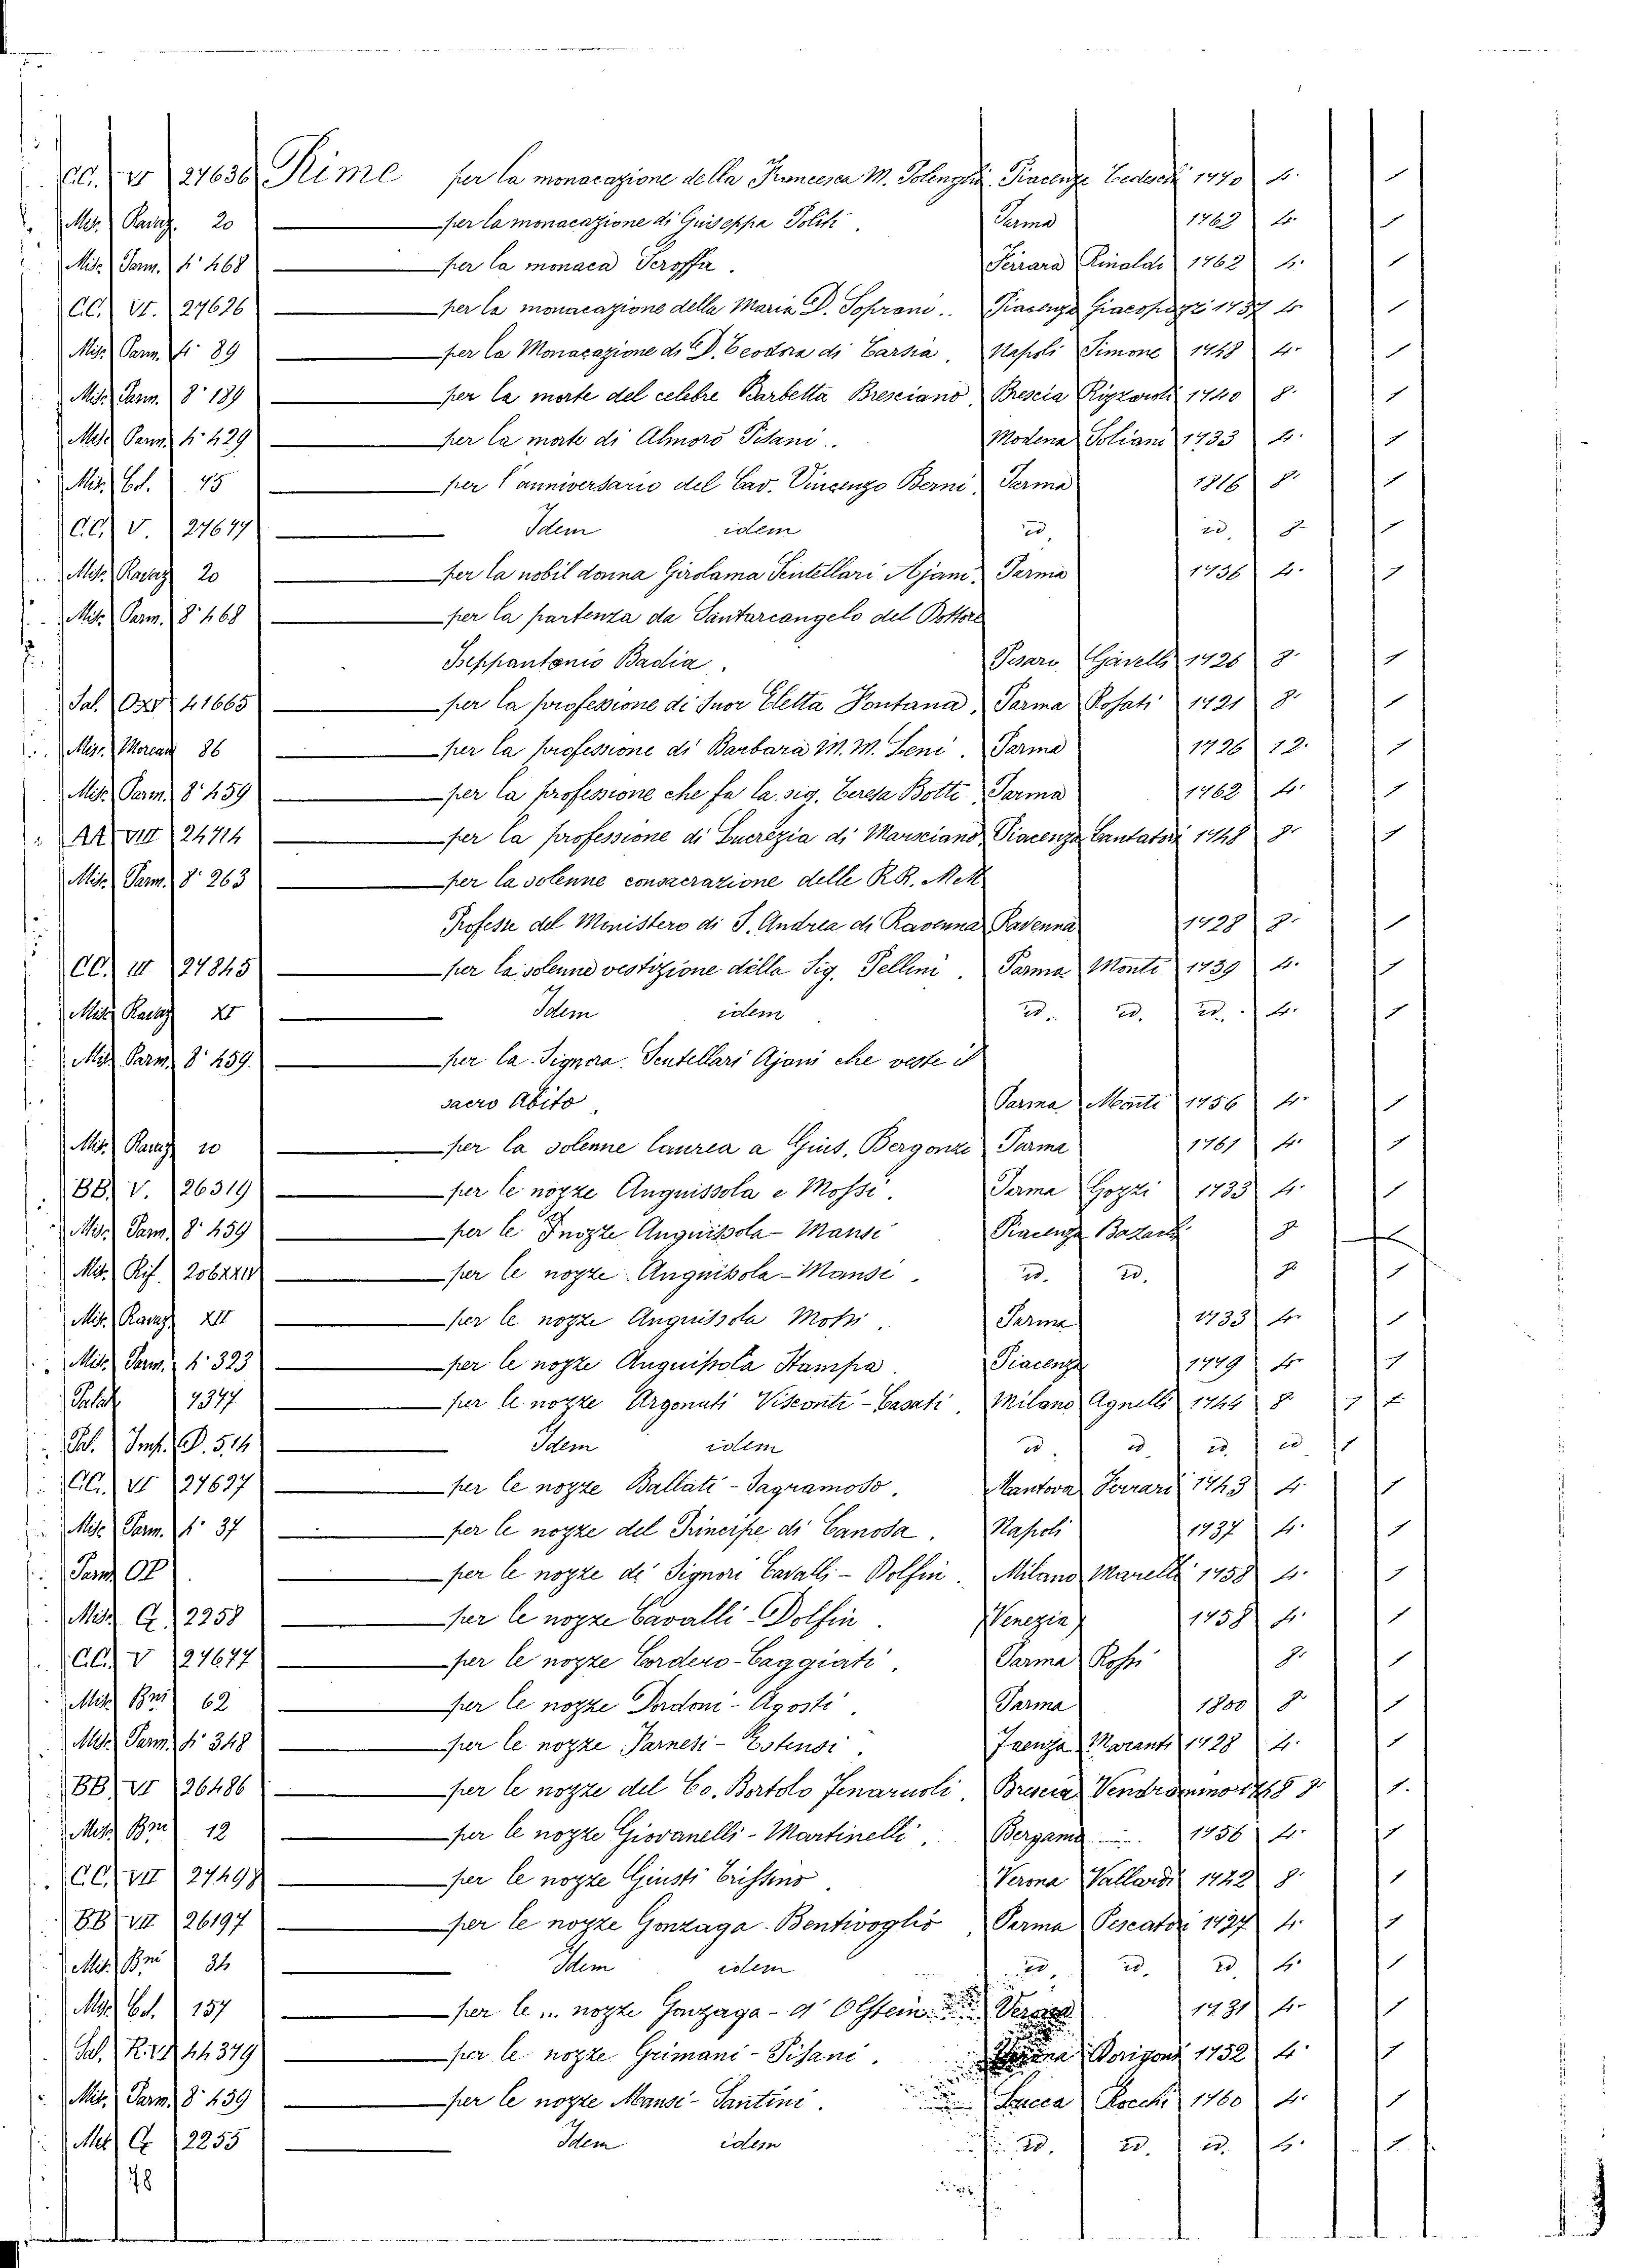 CC. VI 27636 Rime per la monacazione della Francesca M. Piacenza Tedeschi 1770 4.
Mis. Ramaz. 20 — per la monacazione di Guiseppa Politi. Parma 1762 4.
Mis. Parm. 4° 468 — per la monaca Scroffa. Ferrara Rinaldi 1762 4.
CC. VI. 27636 — per la monacazione della Maria D. Soprani. Piacenza Giacopazzi 1737 4.
Mis. Parm. 4° 89 — per la Monacazione di D. Teodora di Tarsia. Napoli Simone 1748 4.
Mis. Parm. 8° 189 — per la morte del celebre Barbetta Bresciano, Brescia Rizzardi 1740 8.
Mis. Parm. 4° 429 — per la morte di Almorò Pisani. Modena Soliani 1733 4.
Mis. Bol. 45 — per l'anniversario del Cav. Vincenzo Berni, Parma 1816 8.
CC. V. 27677 — Idem idem id. id. 8.
Mis. Ramaz. 20 — per la nobil donna Girolama Sentellari Ajani, Parma 1736 4.
Mis. Parm. 8° 468 — per la partenza da Santarcangelo del Dottore
Beppantonio Badia. Pesaro Gavelli 1726 8.
Pal. 41665 — per la professione di Suor Eletta Fontana, Parma Rosati 1721 8.
Mis. Moreau 86 — per la professione di Barbara M. M. Leni. Parma 1726 12.
Mis. Parm. 8° 459 — per la professione che fa la sig. Teresa Botti. Parma 1762 4.
AA VIII 24714 — per la professione di Lucrezia di Marsciano, Piacenza 1748 8.
Mis. Parm. 8° 263 — per la solenne consacrazione delle RR. MM
Professe del Monistero di S. Andrea di Ravenna Ravenna 1728 8.
CC. III 27845 — per la solenne vestizione della Sig. Pellini. Parma Monti 1739 4.
Mis. Ramaz. — Idem idem id. id. id. 4.
Mis. Parm. 8° 459. — per la Signora Sentellari Ajani che veste il
sacro Abito. Parma Monti 1756 4.
Mis. Ramaz. 20 — per la solenne laurea a Gius. Bergonzi Parma 1761 4.
BB. V. 26319 — per le nozze Anguissola e Mossi. Parma Gozzi 1733 4.
Mis. Parm. 8° 459 — per le nozze Anguissola-Mansi Piacenza 8
Mis. Rif. — per le nozze Anguissola-Mansi. id. id. 8
Mis. Ramaz. XII — per le nozze Anguissola Mossi. Parma 1733 4.
Mis. Parm. 4° 323 — per le nozze Anguissola Stampa. Piacenza 1749 4.
Palat. 7347 — per le nozze Argonati Visconti-Casati. Milano Agnelli 1744 8
Pal. Imp. P. 514 — Idem idem id. id. id. id
CC. VI 27637 — per le nozze Ballati-Sagramoso. Mantova Ferrari 1743 4.
Mis. Parm. 4° 37 — per le nozze del Principe di Canosa. Napoli 1737 4.
Parm. — per le nozze de' Signori Cavalli-Dolfin. Milano Marelli 1758 4.
Mis. G. 2258 — per le nozze Cavalli-Dolfin. Venezia 1758 4.
CC. V 27677 — per le nozze Cordero-Caggiati. Parma Rossi 8.
Mis. Bni 62 — per le nozze Dordoni-Agosti. Parma 1800 8.
Mis. Parm. 4° 348 — per le nozze Farnesi-Estensi. Faenza Maranti 1728 4.
BB. VI 26486 — per le nozze del Co. Bortolo Fenaruoli. Brescia 8.
Mis. Bni 12 — per le nozze Giovanelli-Martinelli. Bergamo 1756 4.
CC. VII 27498 — per le nozze Giusti Trissino. Verona Vallardi 1742 8.
BB. VII 26197 — per le nozze Gonzaga-Bentivoglio, Parma Pescatori 1727 4.
Mis. Bni 34 — Idem idem id. id. id. 4.
Mis. Bol. 157 — per le nozze Gonzaga-d'Olstein Verona 1731 4.
Pal. 44379 — per le nozze Grimani-Pisani. 1752 4.
Mis. Parm. 8° 459 — per le nozze Mansi-Santini. Lucca Rocchi 1760 4.
Mis. G. 2255 — Idem idem id. id. id. 4.
48